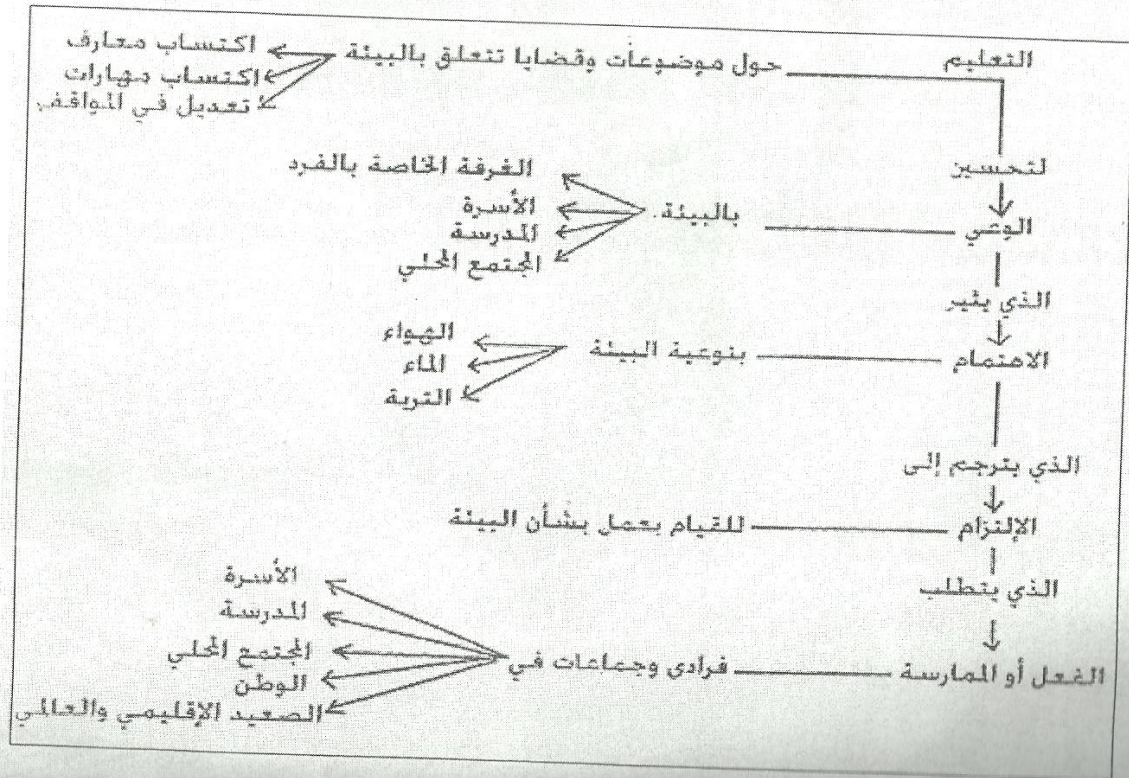 التعليم
حول موضوعات وقضايا تتعلق بالبيئة
اكتساب معارف
اكتساب مهارات
تعديل في المواقف
لتحسين
الوعي
بالبيئة.
الغرفة الخاصة بالفرد
الأسرة
المدرسة
المجتمع المحلي
الذي يثير
الاهتمام
بنوعية البيئة
الهواء
الماء
التربة
الذي يترجم إلى
الإلتزام
للقيام بعمل بشأن البيئة
الذي يتطلب
الفعل أو الممارسة
فرادى وجماعات في
الأسرة
المدرسة
المجتمع المحلي
الوطن
الصعيد الإقليمي والعالمي